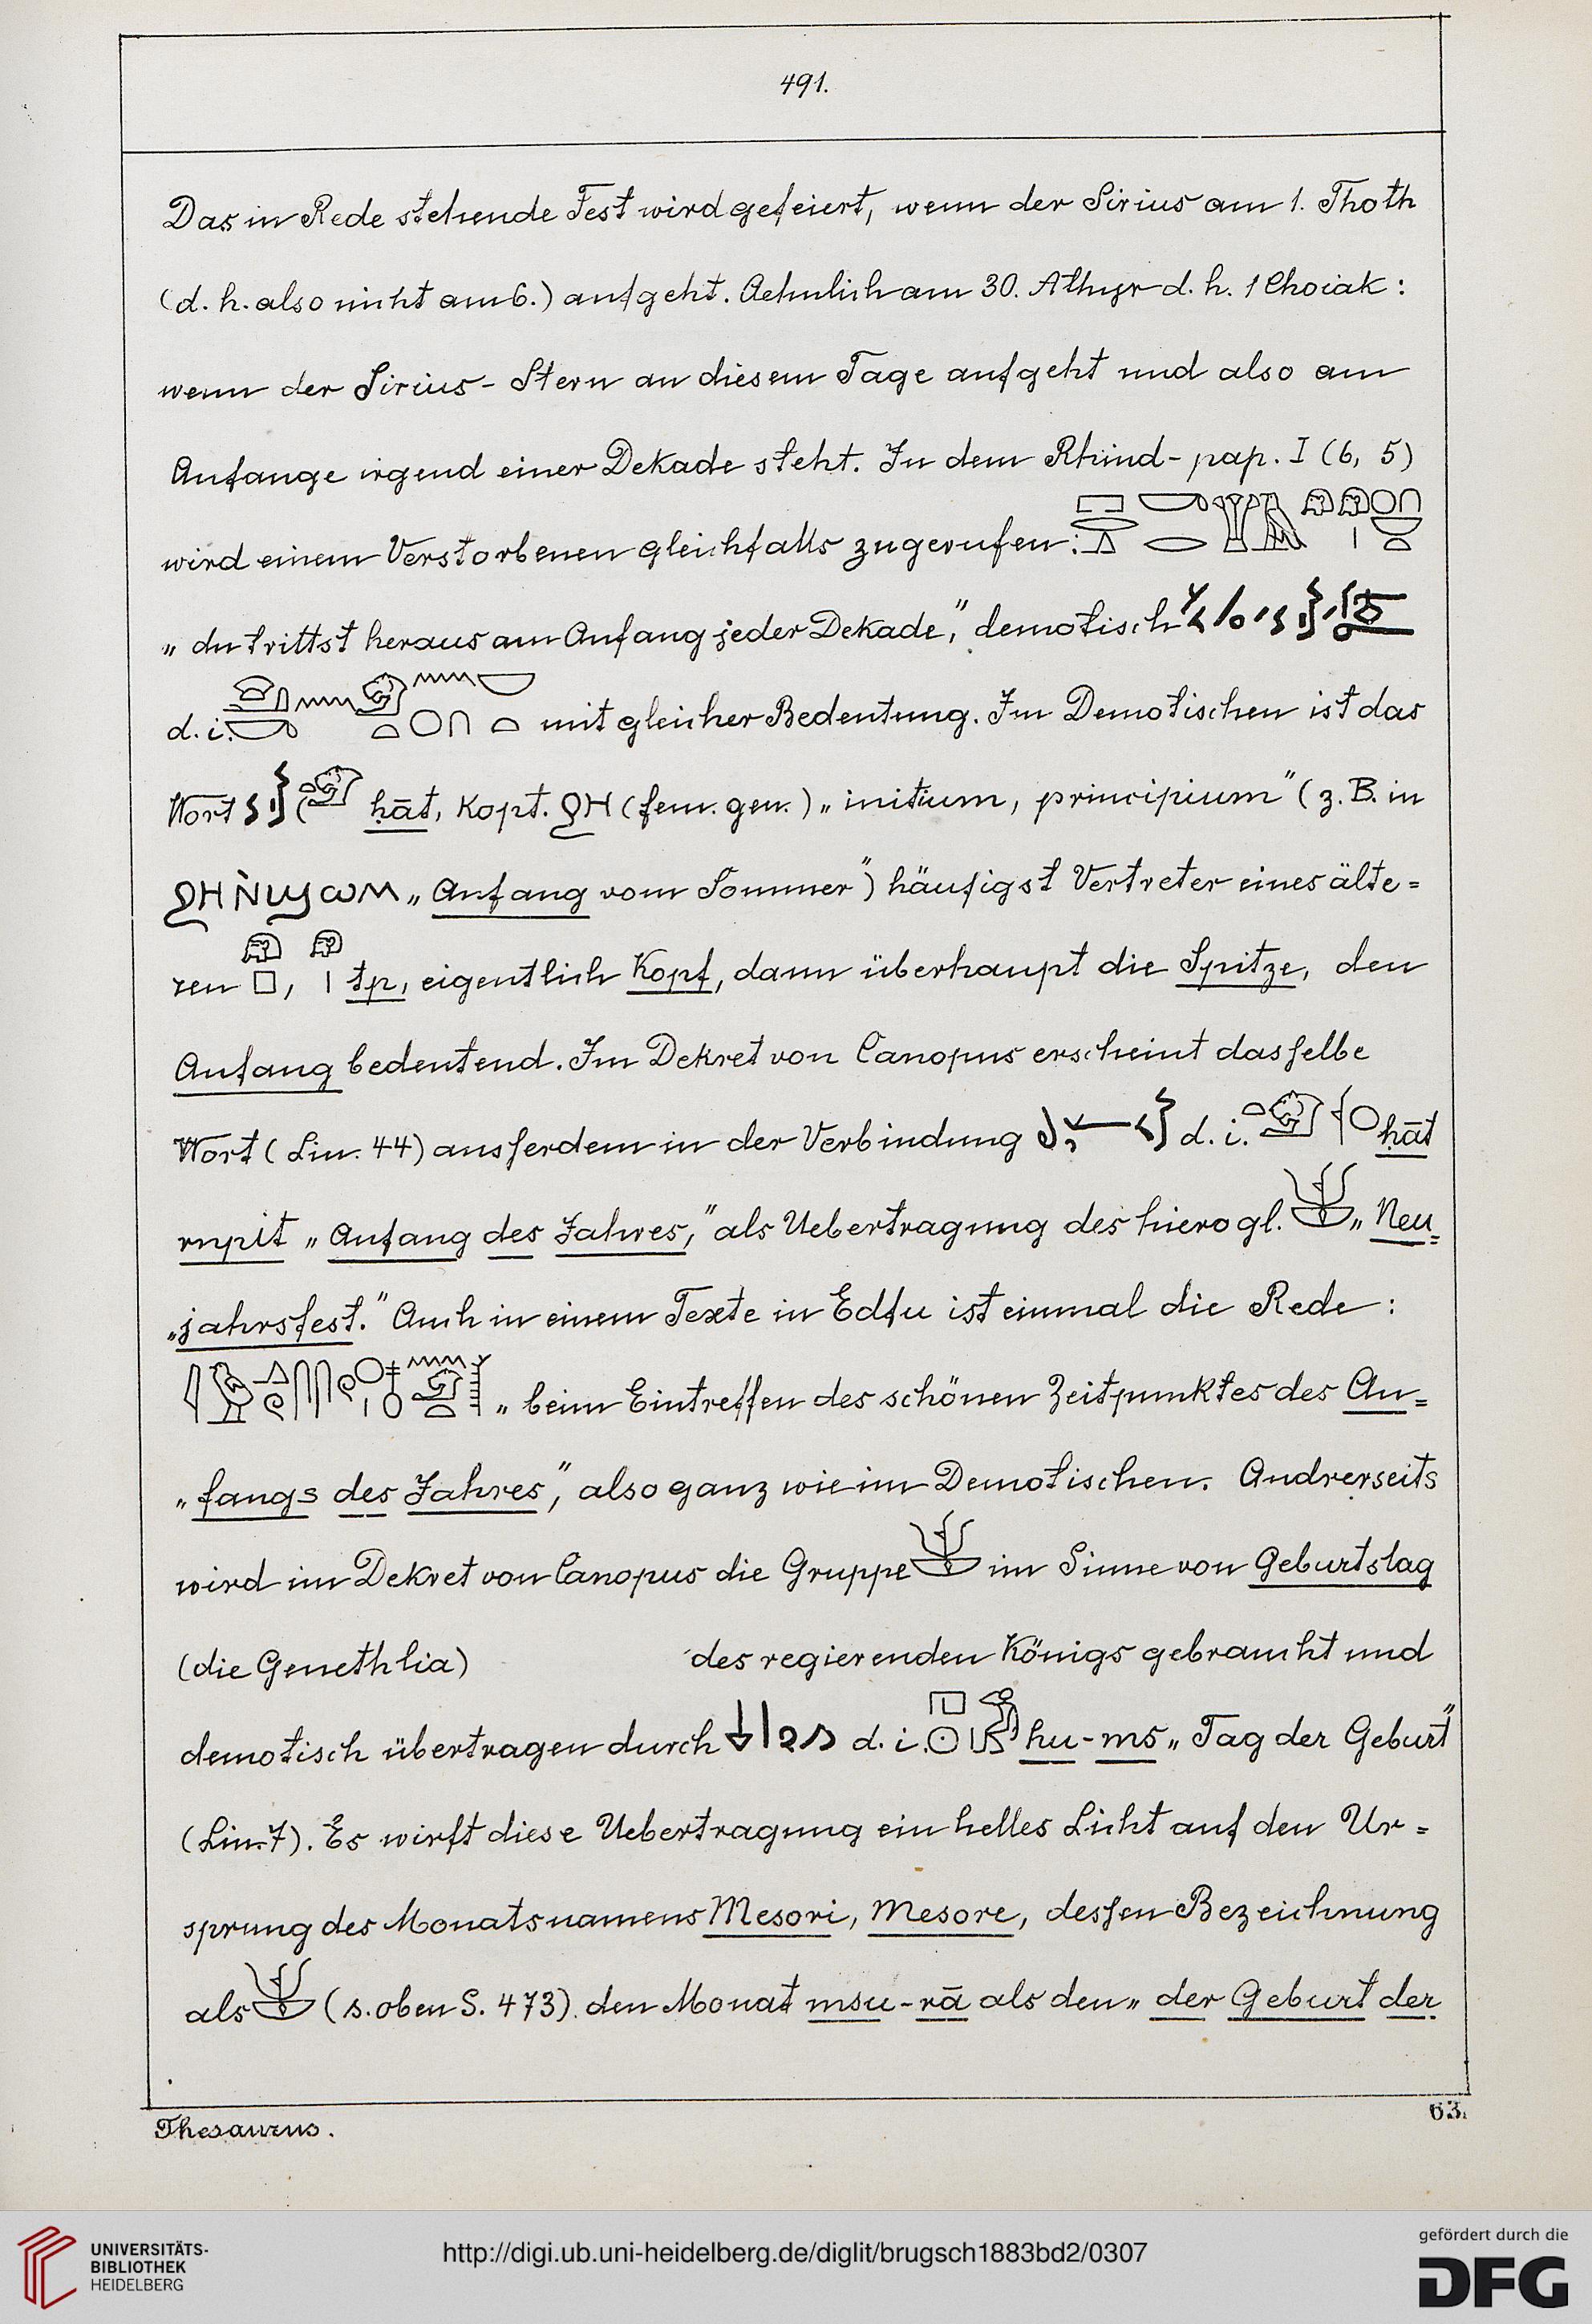 491.
Das in Rede stehende Fest wird gefeiert, wenn der Sirius am 1. Thoth
(d. h. also nicht am 6.) aufgeht. Aehnlich am 30. Athyr d. h. 1 Choiak :
wenn der Sirius-Stern an diesem Tage aufgeht und also am
Anfange irgend einer Dekade steht. In dem Rhind-pap. I (6, 5)
wird einem Verstorbenen gleichfalls zugerufen:
„du trittst heraus am Anfang jeder Dekade," demotisch
d. i. mit gleicher Bedeutung. Im Demotischen ist das
Wort ḥāt, kopt. ϨΗ (fem. gen.) „initium, principium" (z. B. in
ϨΗ Ǹϣωμ „Anfang vom Sommer") häufigst Vertreter eines älte=
ren , tp, eigentlich Kopf, dann überhaupt die Spitze, den
Anfang bedeutend. Im Dekret von Canopus erscheint dasselbe
Wort (Lin. 44) ausserdem in der Verbindung d. i. ḥāt
rnpit „Anfang des Jahres," als Uebertragung des hierogl. „Neu=
„jahrsfest." Auch in einem Texte in Edfu ist einmal die Rede :
„beim Eintreffen des schönen Zeitpunktes des An=
„fangs des Jahres", also ganz wie im Demotischen. Andrerseits
wird im Dekret von Canopus die Gruppe im Sinne von Geburtstag
(die Genethlia) des regierenden Königs gebraucht und
demotisch übertragen durch d. i. hu-ms „Tag der Geburt"
(Lin. 7). Es wirft diese Uebertragung ein helles Licht auf den Ur=
sprung des Monatsnamens Mesori, Mesore, dessen Bezeichnung
als (s. oben S. 473). den Monat msu-rā als den „der Geburt der
Thesaurus.
63.
UNIVERSITÄTS-
BIBLIOTHEK
HEIDELBERG
http://digi.ub.uni-heidelberg.de/diglit/brugsch1883bd2/0307
gefördert durch die
DFG